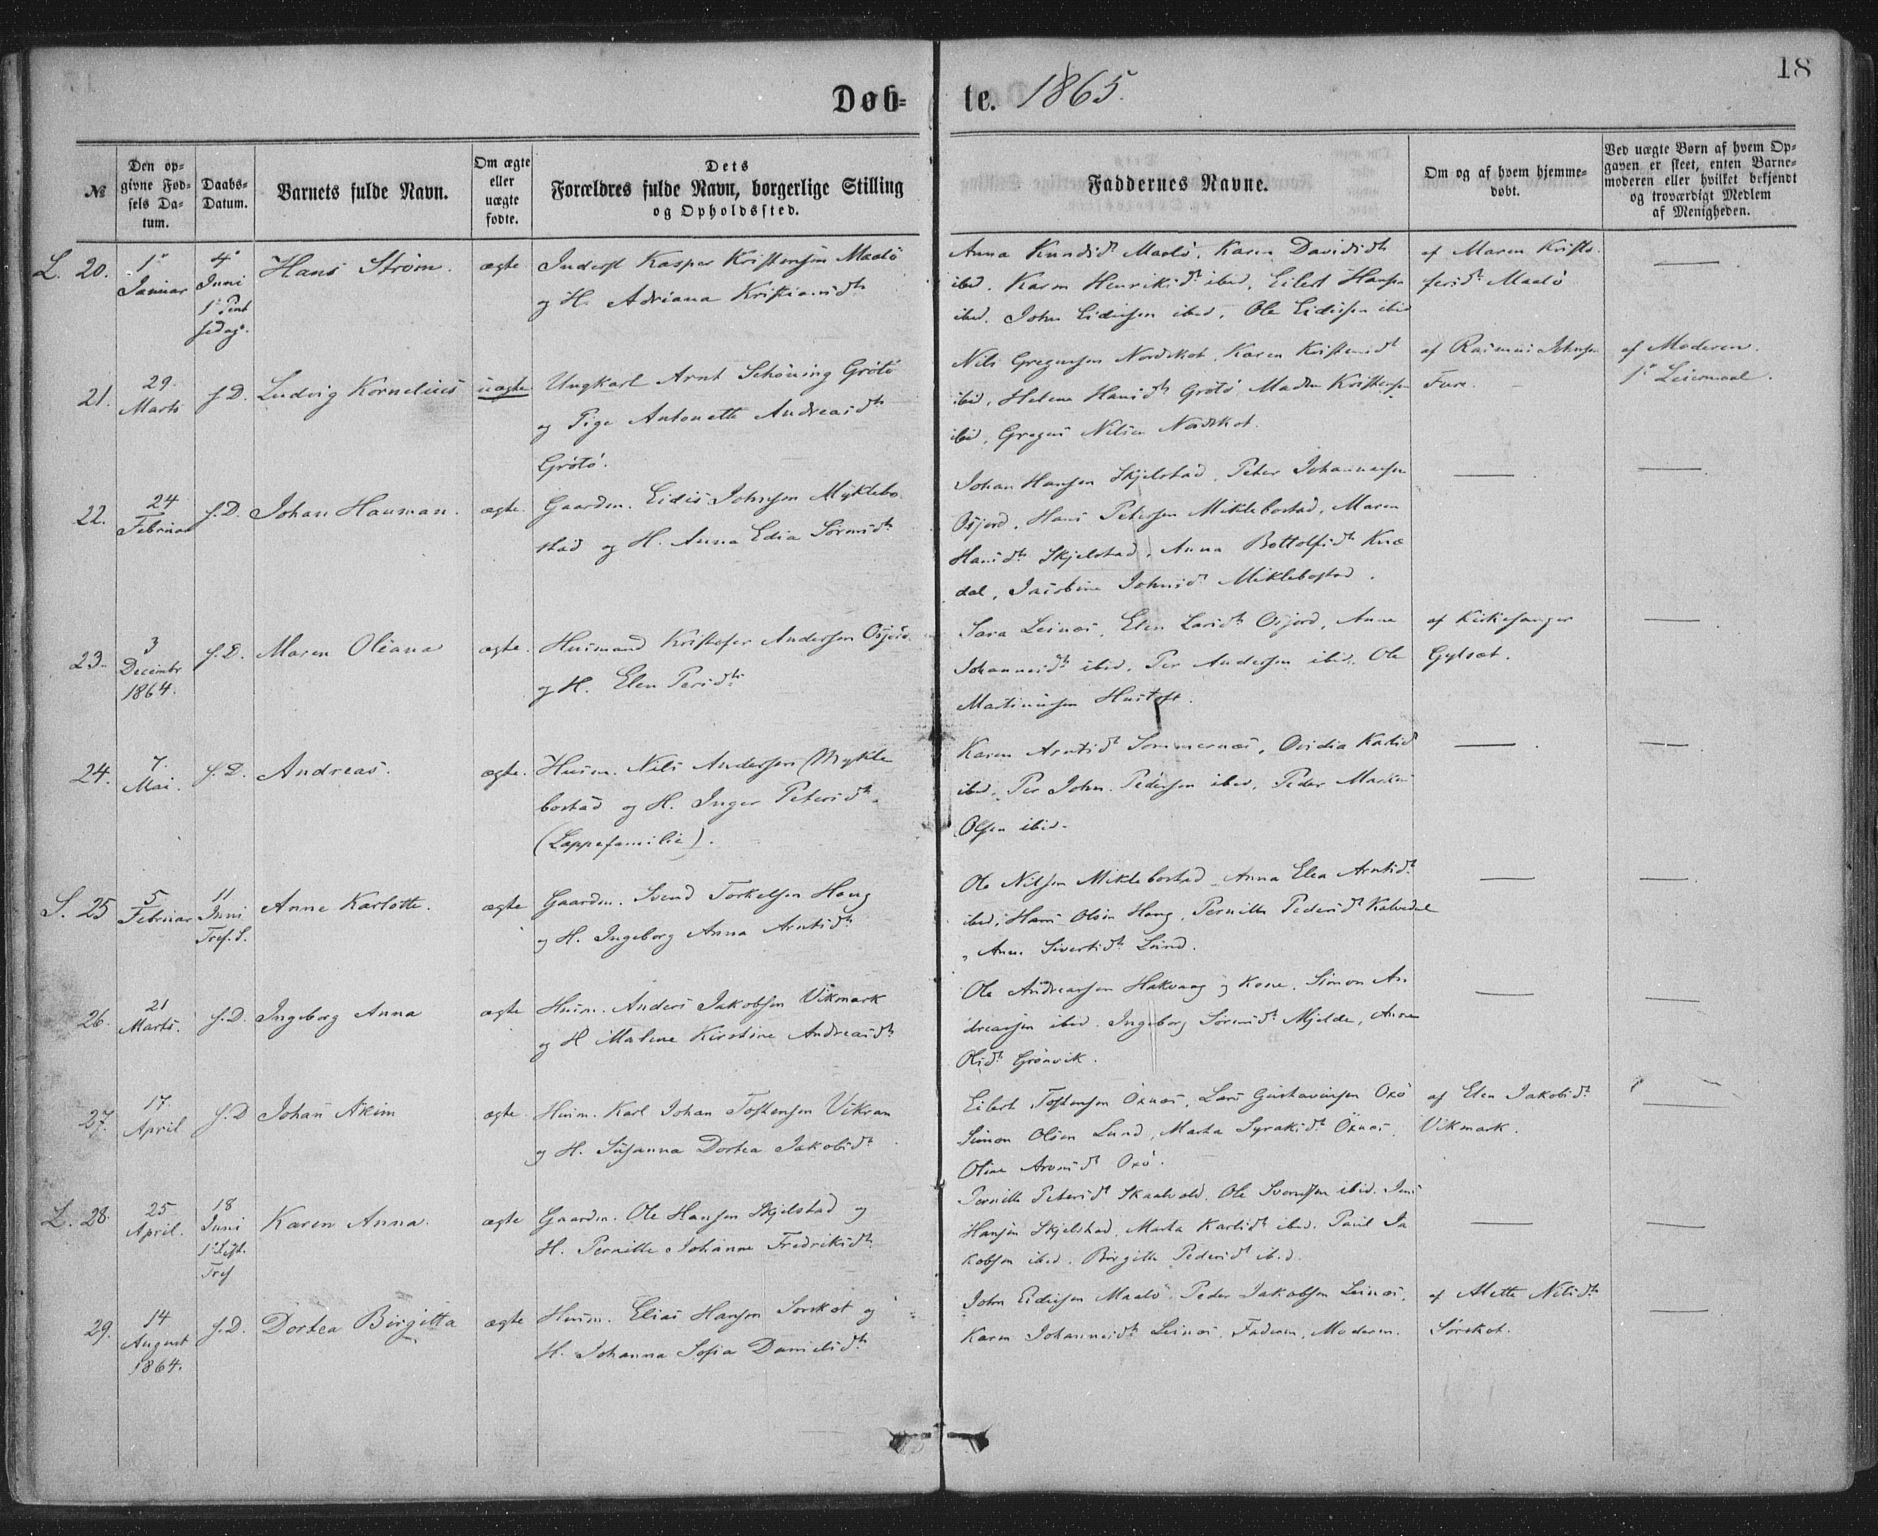 18
Døb-te. 1865.
№
Den op-
givne Fød-
sels Da-
tum.
Daabs-
Datum.
Barnets fulde Navn.
Om ægte
eller
uægte
fødte.
Dets
Forældres fulde Navn, borgerlige Stilling
og Opholdssted.
Faddernes Navne.
Om og af hvem hjemme-
døbt.
Ved uægte Børn af hvem Op-
gaven er skeet, enten Barne-
moderen eller hvilket bekjendt
og troværdigt Medlem
af Menigheden.
L. 20.
1ste
Januar
4de
Juni
1ste Pint
sedag.
Hans Strøm.
ægte
Inderst Kasper Kristensen Maalø
og H. Adriana Kristiansdtr
Anna Knudsdtr Maalø, Karen Davidsdtr
ibid. Karen Henriksdtr ibid, Eilert Hansen
ibid. John Eidissen ibid, Ole Eidissen ibid
af Maren Kristo-
fersdtr Maalø
21.
29.
Marts
s. D.
Ludvig Kornelius
uægte
Ungkarl Arnt Schöning Grøtø
og Pige Antonette Andreasdtr
Grøtø.
Nils Gregusen Nordskot, Karen Kristensdtr
ibid, Helena Hansdtr Grøtø, Kristensen
ibid, Gregus Nilsen Nordskot.
af Rasmus Johnsen
Fure.
af Moderen.
1ste Leiermaal.
22.
24
Februar
s. D.
Johan Hauman.
ægte.
Gaardm. Eidis Johnsen Myklebo-
stad og H. Anna Edia Sörensdtr
Johan Hansen Skjelstad, Peter Johannesen
Osjord, Hans Petersen Miklebostad, Maren
Hansdtr Skjelstad, Anna Bottolfsdtr Kvæ
dal, Jacobine Johnsdtr Miklebostad.
23.
3
Decembr
1864.
s. D.
Maren Oleana
ægte.
Husmand Kristofer Andersen Osjord
og H. Elen Persdtr
Sara Leines, Elen Larsdtr Osjord, Anne
Johannesdtr ibid, Per Andersen ibid. Ole
Martinusen Hustoft.
af Kirkesanger
Gylset.
24.
7.
Mai.
s. D.
Andreas.
ægte.
Husm. Nils Andersen Mykle
bostad og H. Inger Petersdtr
(Lappefamilie).
Karen Arntsdtr Sommernes, Ovidia Karlsdtr
ibid, Per John Pedersen ibid, Peder
Olsen ibid.
S. 25
5
Februar
11
Juni
Tref. S.
Anne Karlotte.
ægte
Gaardm. Svend Torkelsen Haug
og H. Ingeborg Anna Arntsdtr
Ole Nilsen Miklebostad, Anna Elea Arntsdtr
ibid, Hans Olsen Haug, Pernille Pedersdtr Kalvedal
, Anne Sivertsdtr Lund.
26.
21
Marts.
s. D.
Ingeborg Anna
ægte
Husm. Anders Jakobsen Vikmark
og H Malene Kirstine Andreasdtr
Ole Andreassen Hakvaag og Kone, Simon An
dreasen ibid. Ingeborg Sörensdtr Mjelde, Anne
Olsdtr Grönvik.
27.
17.
April
s. D
Johan Akim
ægte
Husm. Karl Johan Tostensen Vikran
og H. Susanna Dortea Jakobsdtr
Eilert Tostensen Oxnes, Lars Gustavusen Oxö
Simon Olsen Lund, Marta Syraksdtr Öxnes,
Oline Oxö.
af Elen Jakobsdtr
Vikmark.
L. 28.
25
April.
18
Juni
1.
Tref
Karen Anna.
ægte
Gaardm. Ole Hansen Skjelstad og
H. Pernille Johanne Fredriksdtr
Pernille Petersdtr Skaalvold, Ole Svendsen ibid, Jens
Hansen Skjelstad, Marta Karlsdtr ibid. Paul Ja
kobsen ibid, Birgitte Pedersdtr ibid.
29.
14
August
1864.
s. D.
Dortea Birgitta
ægte
Husm. Elias Hansen Sørskot og
H. Johanna Sofia Danielsdtr
John Eidissen Maalø, Peder Jakobsen Leines,
Karen Johannesdtr Leines, Faderen, Moderen.
af Alette Nilsdtr
Sørskot.